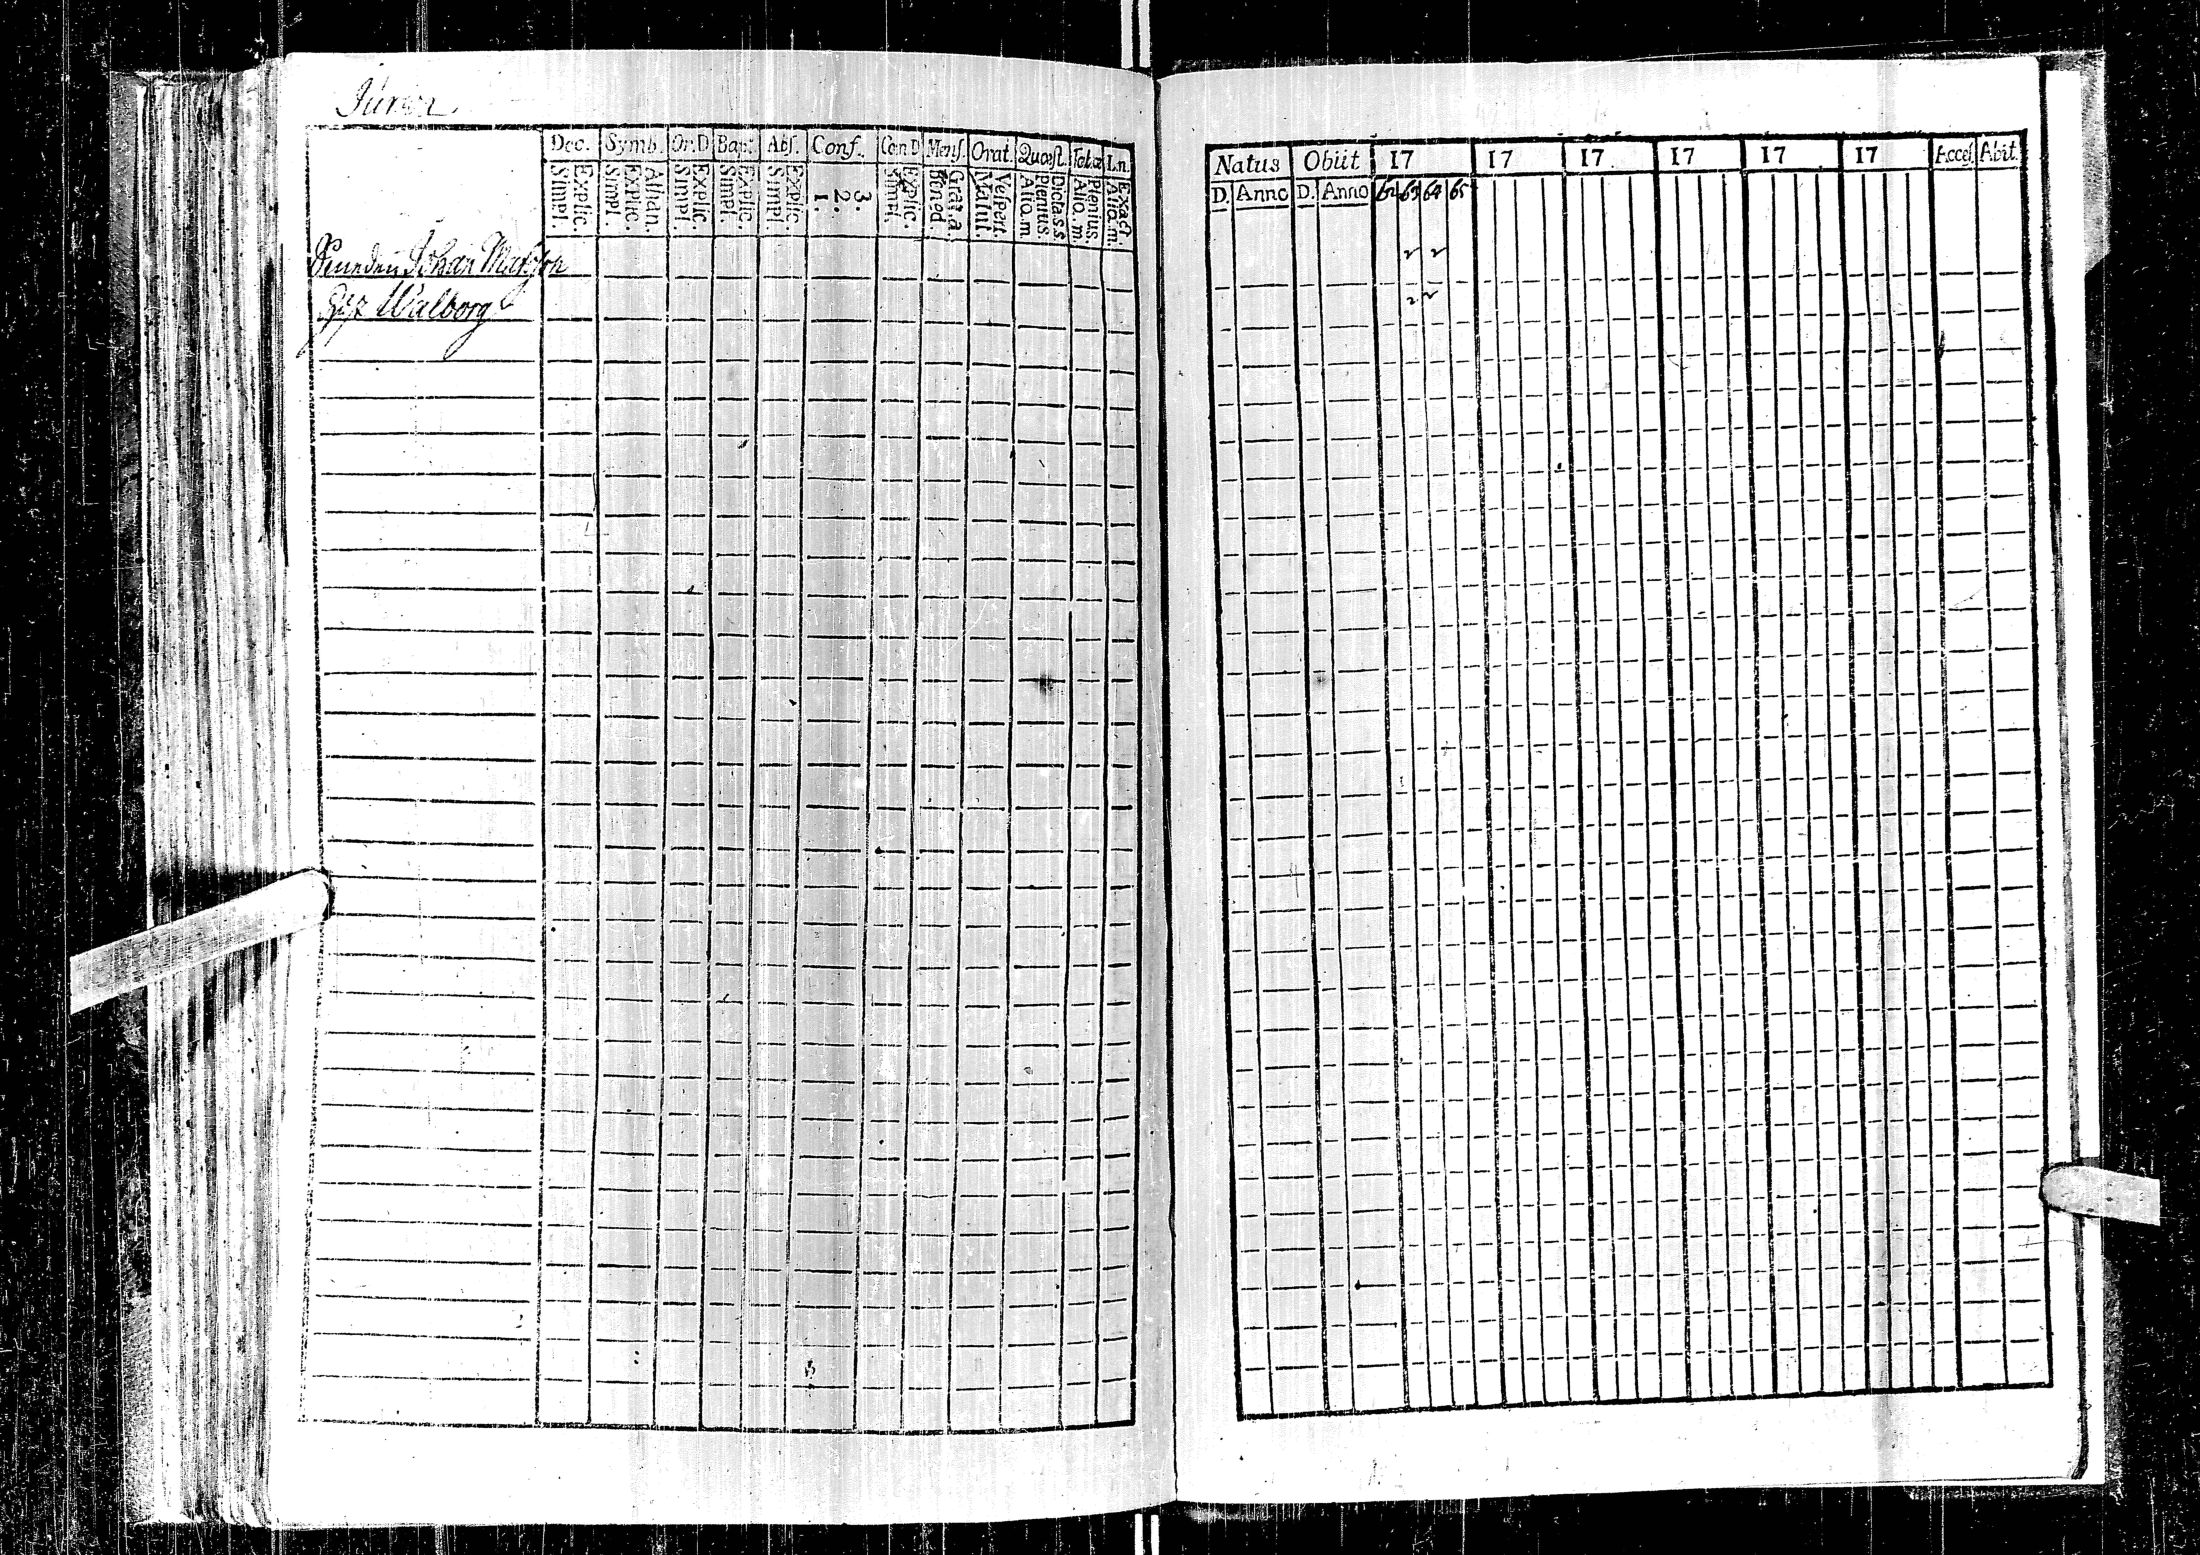 Dec. Symb. Or.D Bapt. Abs. Conf. Cœn.D Mens. Orat. Quæst. Tabœ I.n.
Explic. Simpl. Athan. Explic. Simpl. Explic. Simpl. Explic. Simpl. Explic. Simpl. 3. 2. 1. Explic. Simpl. Grat. a Bened. Vespert. Matut. Dicta.s.s Plenius. Alio.m Plenius. Alio.m. Exact. Alio.m.
Johan Matsson
Walborg
Natus Obiit 17 17 17 17 17 17 Acces. Abit.
D. Anno D. Anno 62 63 64 65
2 2
2 2